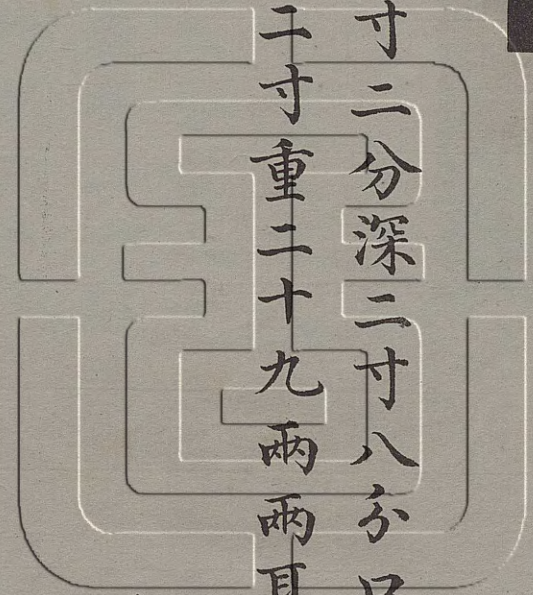 寸二分深二寸八分口
二寸重二十九兩兩耳